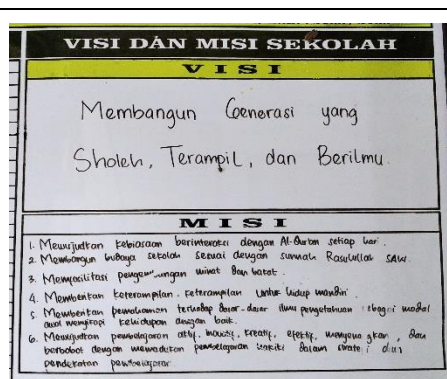 VISI DAN MISI SEKOLAH
VISI
Membangun Generasi yang
Sholeh, Terampil, dan Berilmu.
MISI
1. Mewujudkan kebiasaan berinteraksi dengan Al-Qur'an setiap hari.
2. Membangun budaya sekolah sesuai dengan sunnah Rasulullah SAW.
3. Memfasilitasi minat dan bakat.
4. Memberikan keterampilan-keterampilan untuk hidup mandiri.
5. Memberikan pemahaman terhadap dasar-dasar ilmu pengetahuan sebagai modal
awal kehidupan dengan baik.
6. Mewujudkan pembelajaran aktif, kreatif, efektif, dan
berbobot dengan memadukan pembelajaran dalam
pendekatan pembelajaran